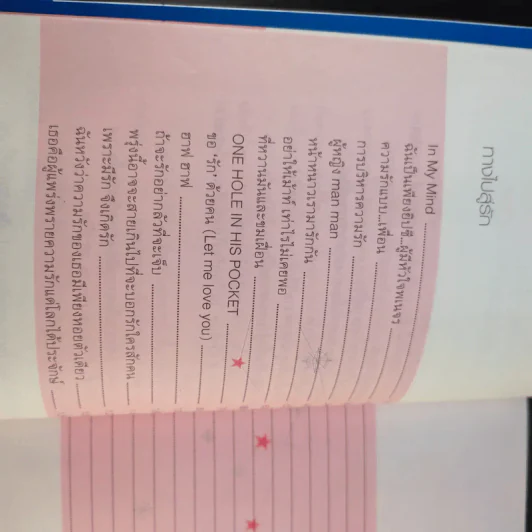 ทางไปสู่รัก
In My Mind
ฉันเป็นเพียงยิปซี...ผู้มีหัวใจพเนจร
ความรักแบบ...เพื่อน
การบริหารความรัก
ผู้หญิง man man
หน้าหนาวเรามารักกัน
อย่าให้เม้าท์ เท่าไรไม่เคยพอ
ที่หวานมันและขมเฝื่อน
ONE HOLE IN HIS POCKET
ขอ 'รัก' ด้วยคน (Let me love you)
ฮาฟ ฮาฟ
ถ้าจะรักอย่ากลัวที่จะเจ็บ
พรุ่งนี้อาจจะสายเกินไปที่จะบอกรักใครสักคน
เพราะมีรัก จึงเกิดรัก
ฉันหวังว่าความรักของเธอมีเพียงหอยตัวเดียว
เธอคือผู้แพร่งพรายความรักแด่โลกได้ประจักษ์